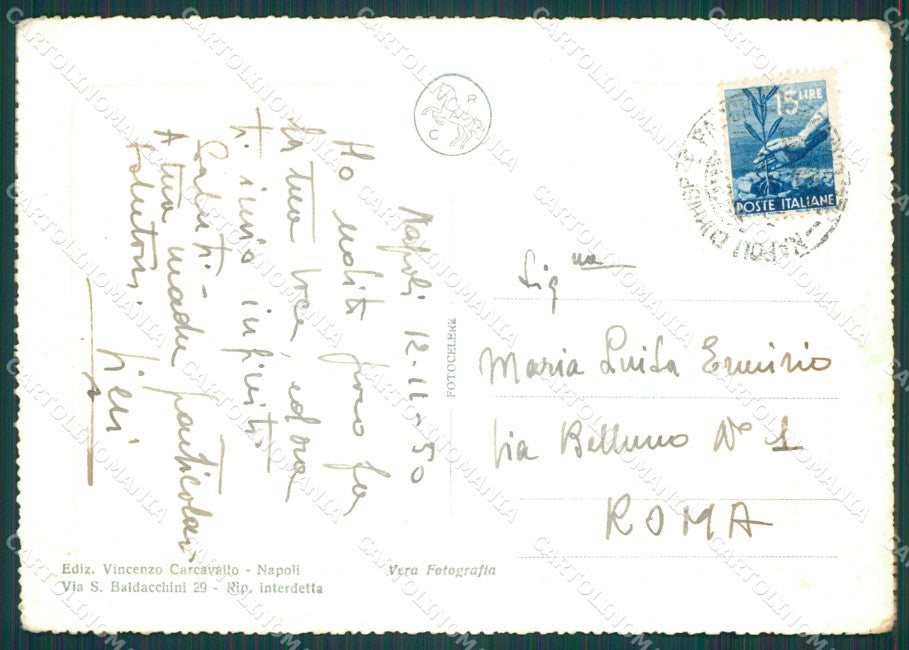 Napoli 12-11-50
Ho udito poco fa
la tua voce, ed ora
ti invio infiniti
Saluti -
A tua madre particolari
saluti
Pieri
R
C
15 LIRE
POSTE ITALIANE
NAPOLI
Sig.na
Maria Luisa Erminio
Via Belluno N° 1
ROMA
FOTOCELERE
Ediz. Vincenzo Carcavallo - Napoli
Via S. Baldacchini 29 - Rip. interdetta
Vera Fotografia
CARTOLINOMANIA